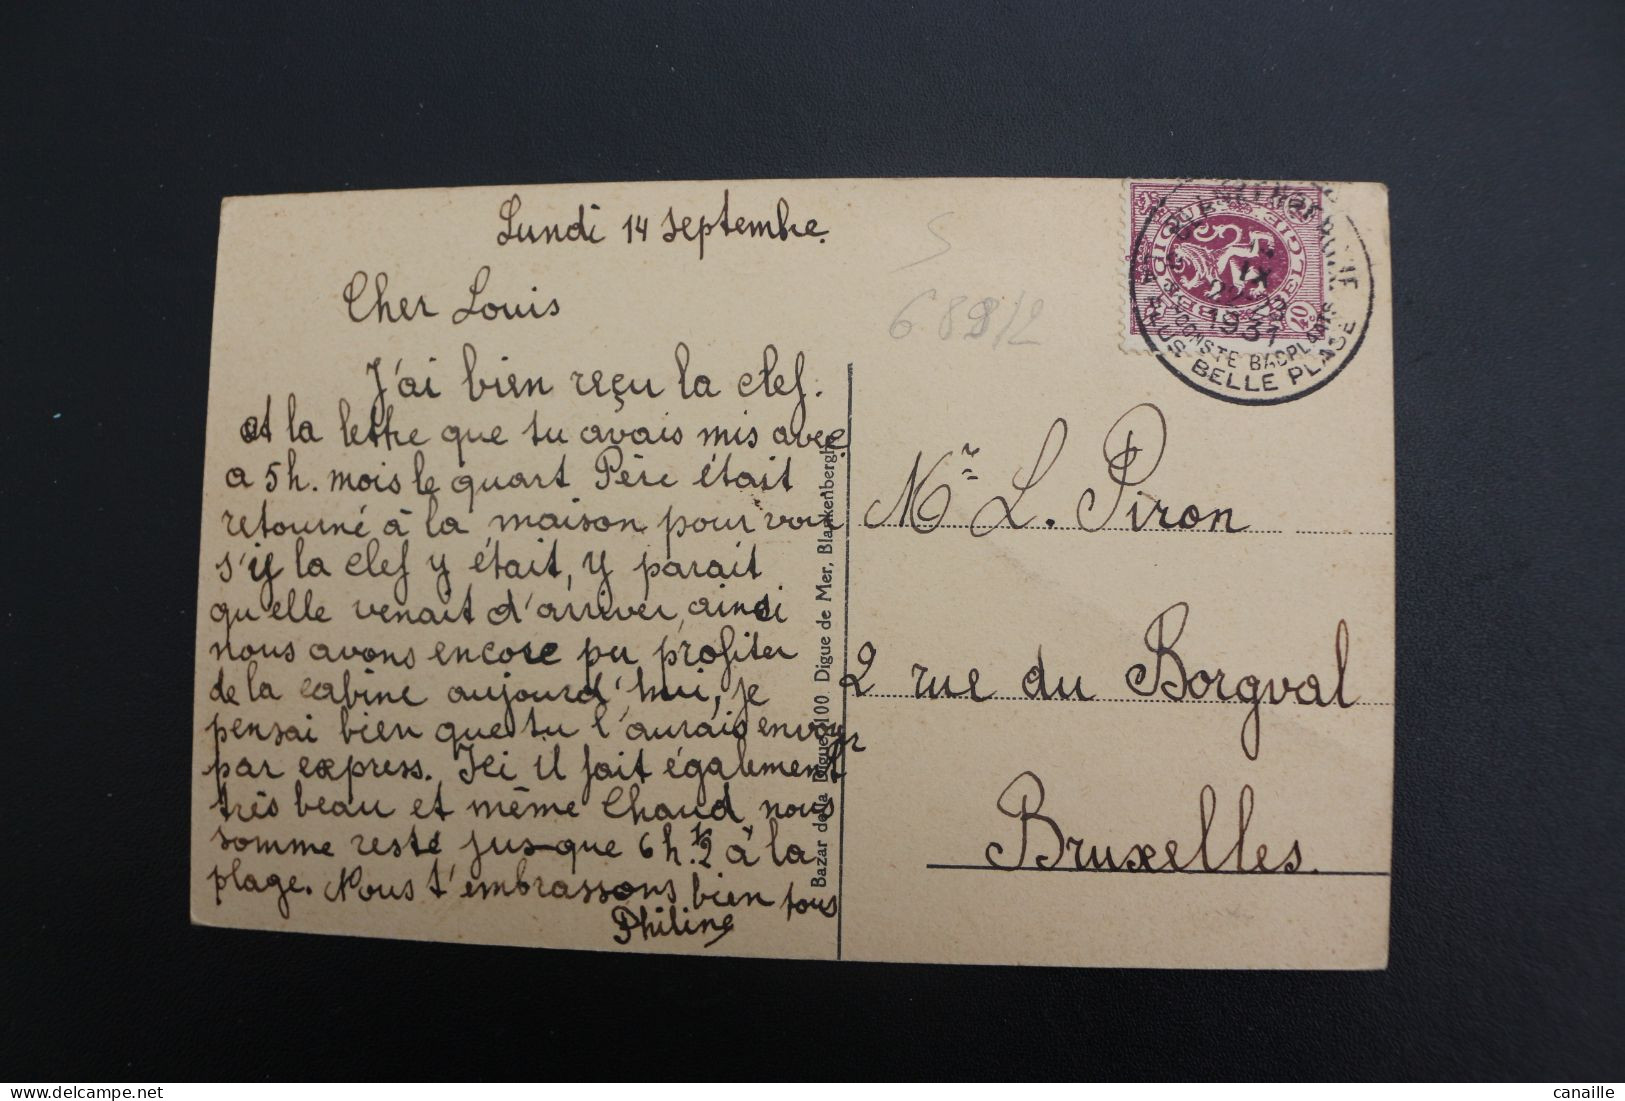 Lundi 14 septembre.
Cher Louis
J'ai bien reçu la clef.
et la lettre que tu avais mis avec
a 5 h. mois le quart Père était
retourné à la maison pour voir
s'iy la clef y était, y parait
qu'elle venait d'arriver, ainsi
nous avons encore pu profiter
de la cabine aujourd'hui, je
pensai bien que tu l'aurais envoyr
par express. Ici il fait également
très beau et même Chaud nous
somme resté jus-que 6 h. 1/2 à la
plage. Nous t'embrassons bien tous
Philine
Bazar de la Digue, 100 Digue de Mer, Blankenberghe
S
68912
14
IX
22-23
1931
PLUS BELLE PLAGE
SCHOONSTE BADPLAATS
BELGIE
BELGIQUE
40c
Mr L. Piron
2 rue du Borgval
Bruxelles.
canaille